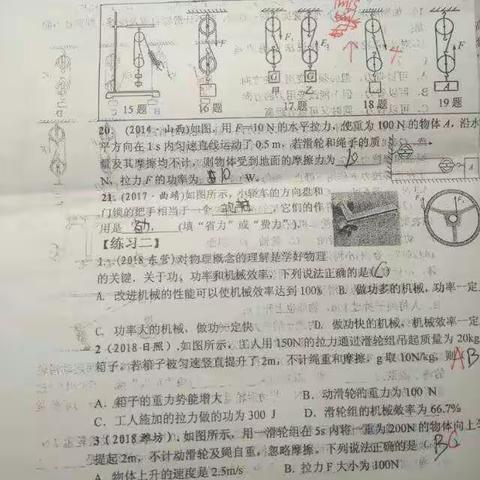 甲 乙
15题 16题 17题 18题 19题
20. (2014·山西)如图，用 F=10 N的水平拉力，使重为 100 N的物体 A，沿水
平方向在 1 s 内匀速直线运动了 0.5 m，若滑轮和绳子的质
量及其摩擦均不计，则物体受到地面的摩擦力为 10
N，拉力 F 的功率为 W。
21. (2017·曲靖)如图所示，小轿车的方向盘和
门锁的把手相当于一个 ，它们的作
用是 (填“省力”或“费力”)。
【练习二】
1. (2018 东营)对物理概念的理解是学好物理
的关键．关于功、功率和机械效率，下列说法正确的是(C)
A. 改进机械的性能可以使机械效率达到 100% B. 做功多的机械，功率一定
C. 功率大的机械，做功一定快 D. 做功快的机械，机械效率一定
2 (2018 日照)．如图所示，工人用 150N 的拉力通过滑轮组吊起质量为 20kg
箱子，若箱子被匀速竖直提升了 2m，不计绳重和摩擦，g 取 10N/kg，则 AB
A．箱子的重力势能增大 B．动滑轮的重力为 100 N
C．工人施加的拉力做的功为 300 J D．滑轮组的机械效率为 66.7%
3 (2018 潍坊)．如图所示，用一滑轮组在 5s 内将一重为 200N 的物体向上匀
提起 2m，不计动滑轮及绳自重，忽略摩擦，下列说法正确的是 ( BC
A．物体上升的速度是 2.5m/s B．拉力 F 大小为 100N